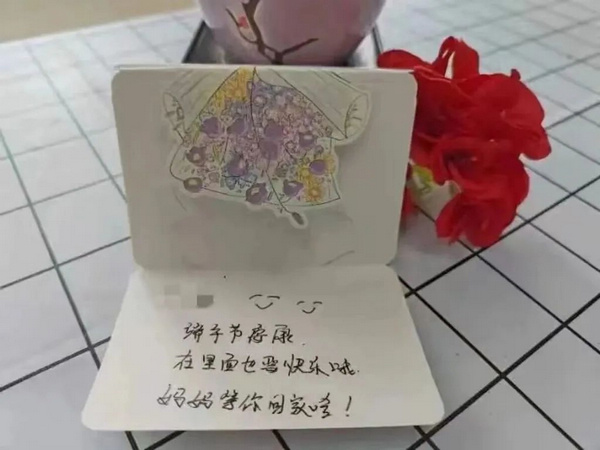 端午节安康.
在里面也要快乐哦.
妈妈等你回家哈！